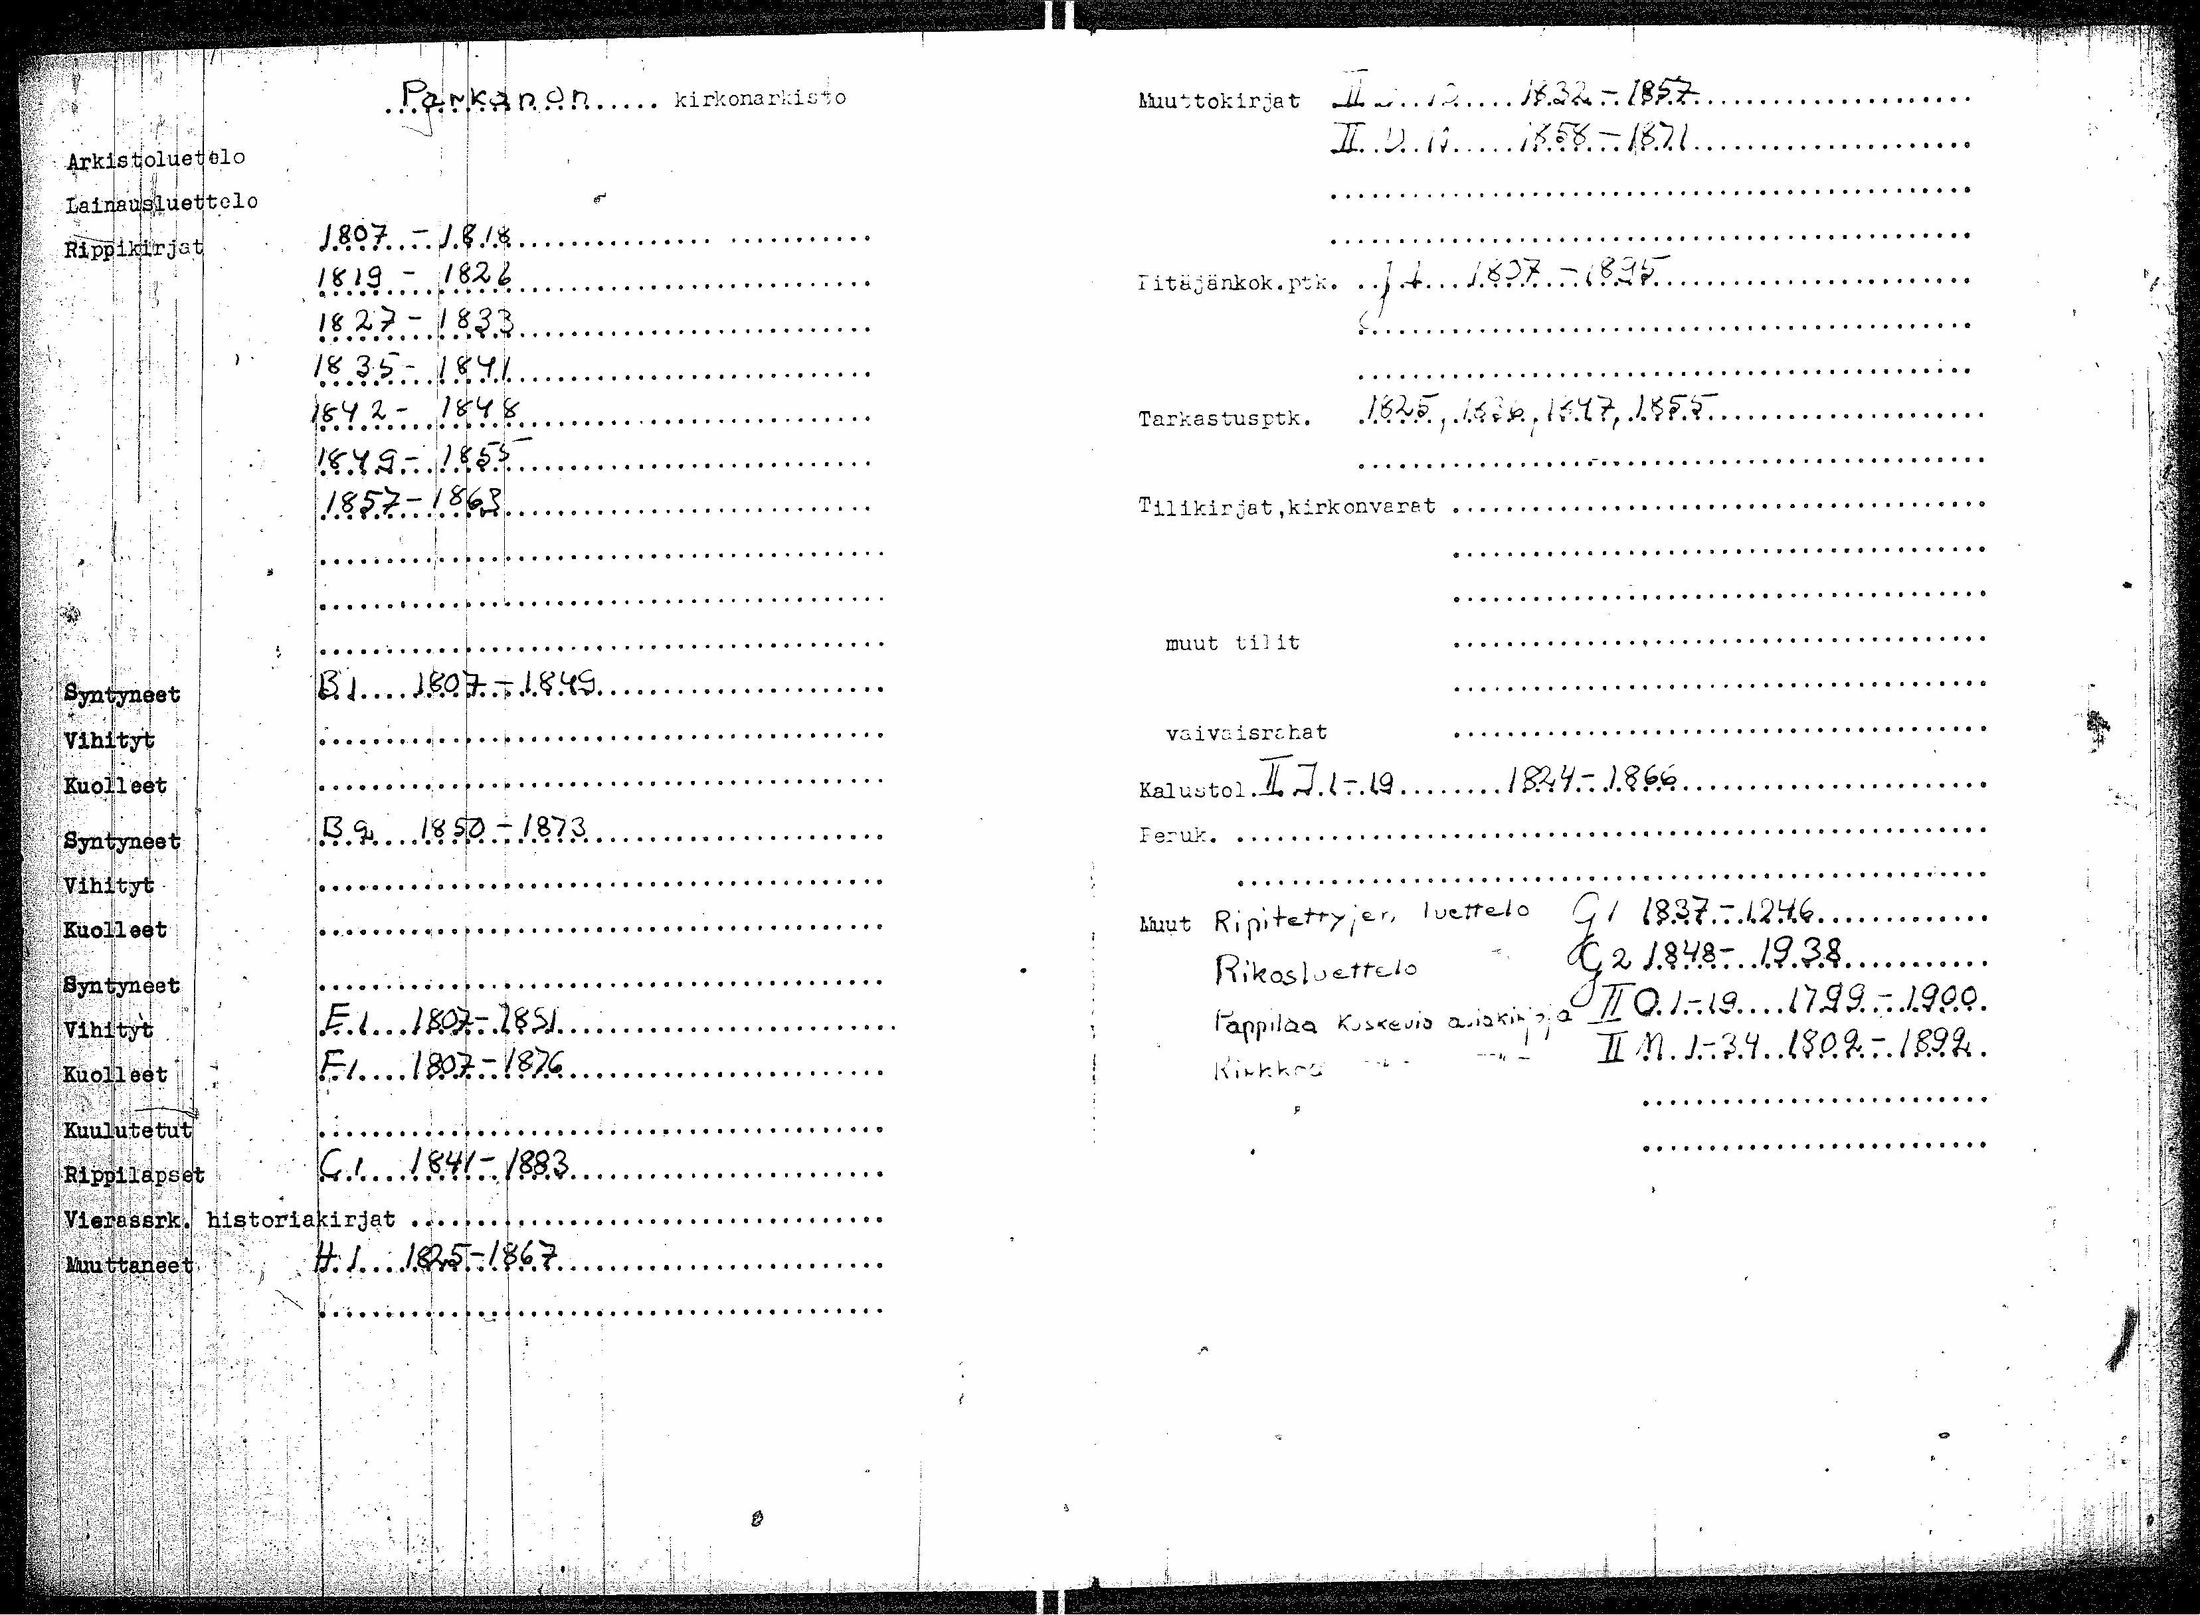 Parkanon kirkonarkisto
Arkistoluetelo
Lainausluettelo
Rippikirjat 1807 - 1818
1819 - 1826
1827 - 1833
1835 - 1841
1842 - 1848
1849 - 1855
1857 - 1863
Syntyneet B I 1807 - 1849
Vihityt
Kuolleet
Syntyneet B 2 1850 - 1873
Vihityt
Kuolleet
Syntyneet
Vihityt E I 1807 - 1851
Kuolleet F I 1807 - 1876
Kuulutetut
Rippilapset C I 1841 - 1883
Vierassrk. historiakirjat
Muuttaneet H I 1825 - 1867
Muuttokirjat II 1832 - 1857
II 1858 - 1871
Pitäjänkok.ptk. 1837 - 1895
Tarkastusptk. 1825, 1836, 1847, 1855
Tilikirjat,kirkonvarat
muut tilit
vaivaisrahat
Kalustol. II J 1 - 19 1824 - 1866
Peruk.
Muut Ripitettyjen luettelo G 1 1837 - 1246
Rikosluettelo G 2 1848 - 1938
Pappilaa koskevia asiakirjoja II O 1 - 19 1799 - 1900
Kirkkoa II M 1 - 34 1802 - 1892